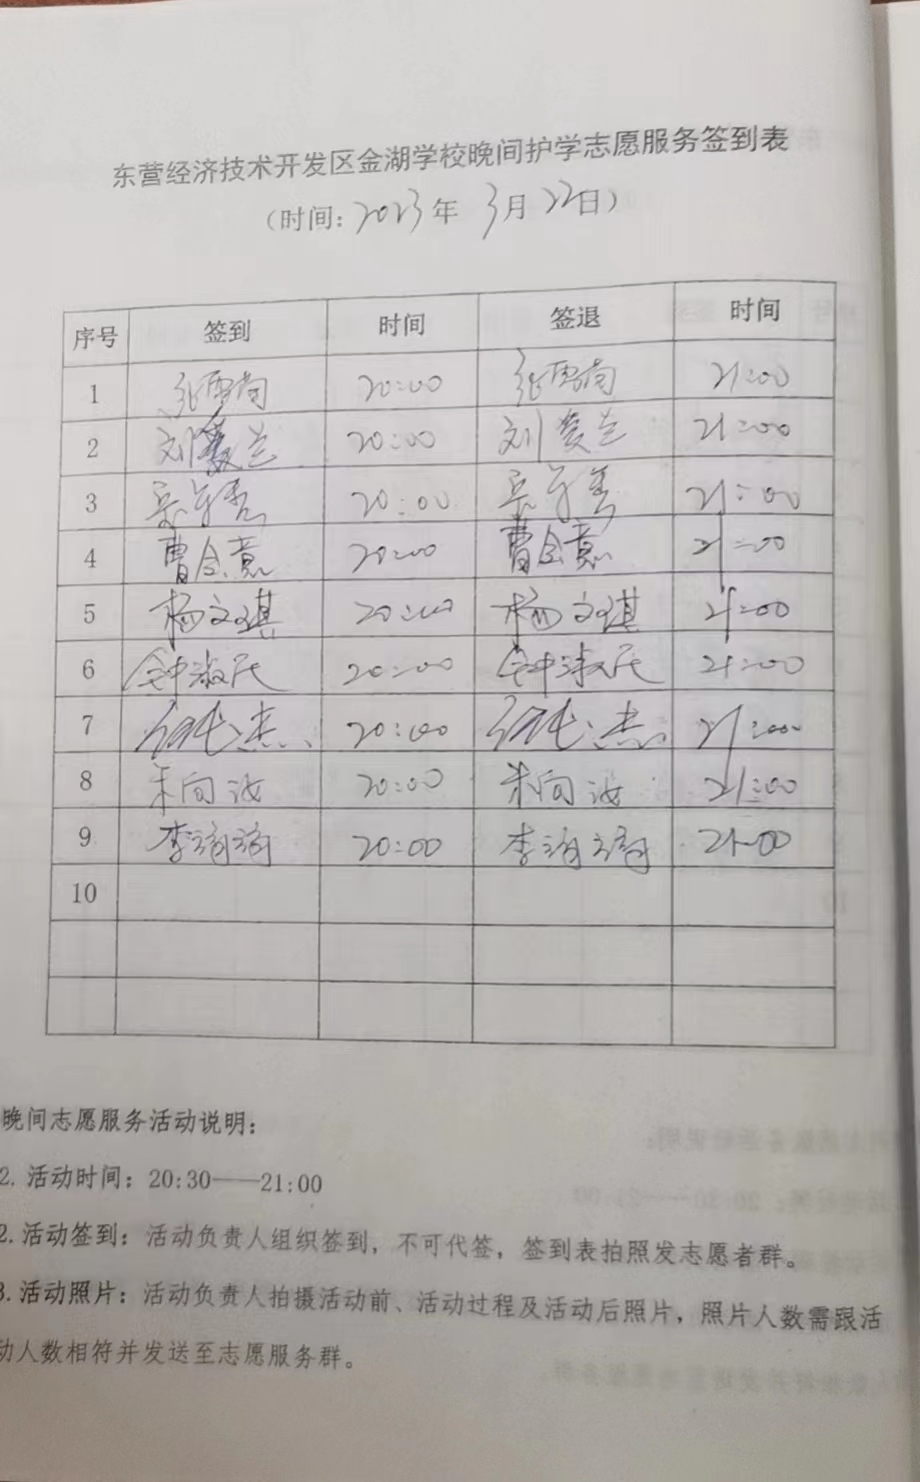 东营经济技术开发区金湖学校晚间护学志愿服务签到表
（时间：2023年 3月 22日）
序号 签到 时间 签退 时间
1 张雪菊 20:00 张雪菊 21:00
2 刘爱兰 20:00 刘爱兰 21:00
3 20:00 21:00
4 曹会意 20:00 曹会意 21:00
5 杨文琪 20:00 杨文琪 21:00
6 钟淑民 20:00 钟淑民 21:00
7 20:00 21:00
8 朱向波 20:00 朱向波 21:00
9 李 20:00 李 21:00
10
晚间志愿服务活动说明：
2. 活动时间：20:30——21:00
2. 活动签到：活动负责人组织签到，不可代签，签到表拍照发志愿者群。
3. 活动照片：活动负责人拍摄活动前、活动过程及活动后照片，照片人数需跟活
动人数相符并发送至志愿服务群。